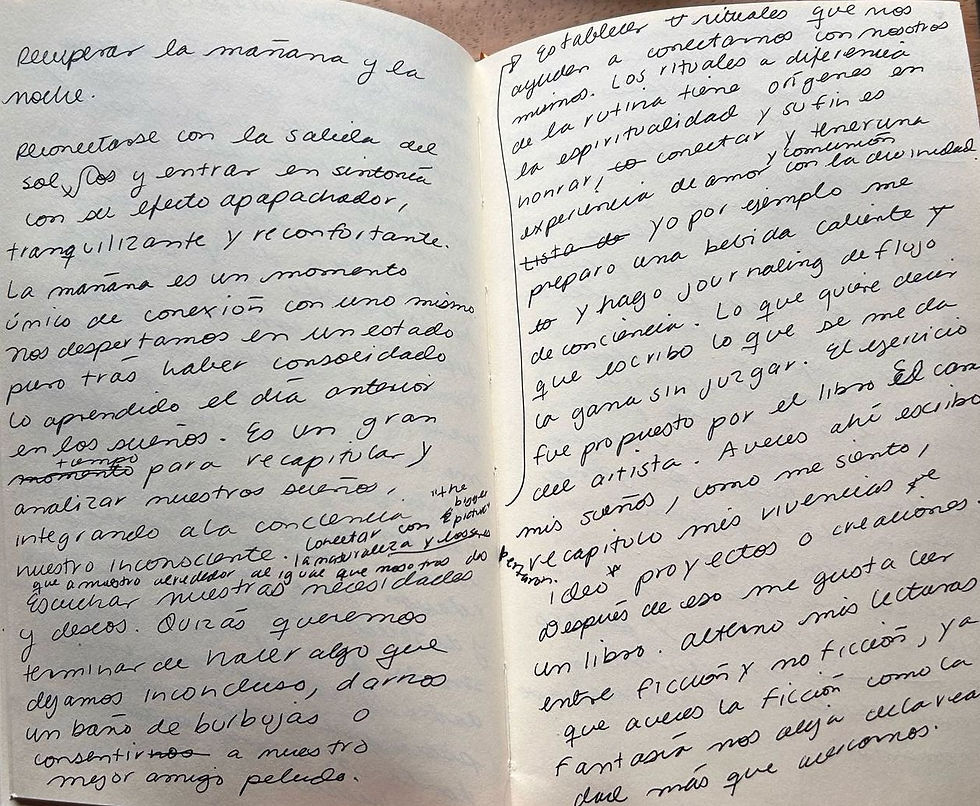 Recuperar la mañana y la
noche.
Reconectarse con la salida del
sol, y entrar en sintonía
con su efecto apapachador,
tranquilizante y reconfortante.
La mañana es un momento
único de conexión con uno mismo
nos despertamos en un estado
puro trás haber consolidado
lo aprendido el día anterior
en los sueños. Es un gran
tiempo
momento para recapitular y
analizar nuestros sueños,
integrando a la conciencia
nuestro inconsciente. conectar con "the bigger picture"
la naturaleza y los seres
que a nuestro alrededor al igual que nosotros
despertaron.
Escuchar nuestras necesidades
y deseos. Quizás queremos
terminar de hacer algo que
dejamos inconcluso, darnos
un baño de burbujas o
consentirnos a nuestro
mejor amigo peludo.
Establecer rituales que nos
ayuden a conectarnos con nosotros
mismos. Los rituales a diferencia
de la rutina tiene orígenes en
la espiritualidad y su fin es
honrar, to conectar y tener una
y comunión
experiencia de amor con la divinidad
Lista de yo por ejemplo me
preparo una bebida caliente y
to y hago journaling de flujo
de conciencia. Lo que quiere decir
que escribo lo que se me da
la gana sin juzgar. El ejercicio
fue propuesto por el libro El cam
del artista. A veces ahí escribo
mis sueños, como me siento,
recapitulo mis vivencias
ideo proyectos o creaciones.
Después de eso me gusta leer
un libro. alterno mis lecturas
entre ficción y no ficción, ya
que aveces la ficción como la
fantasía nos aleja de la reali
dad más que acercarnos.